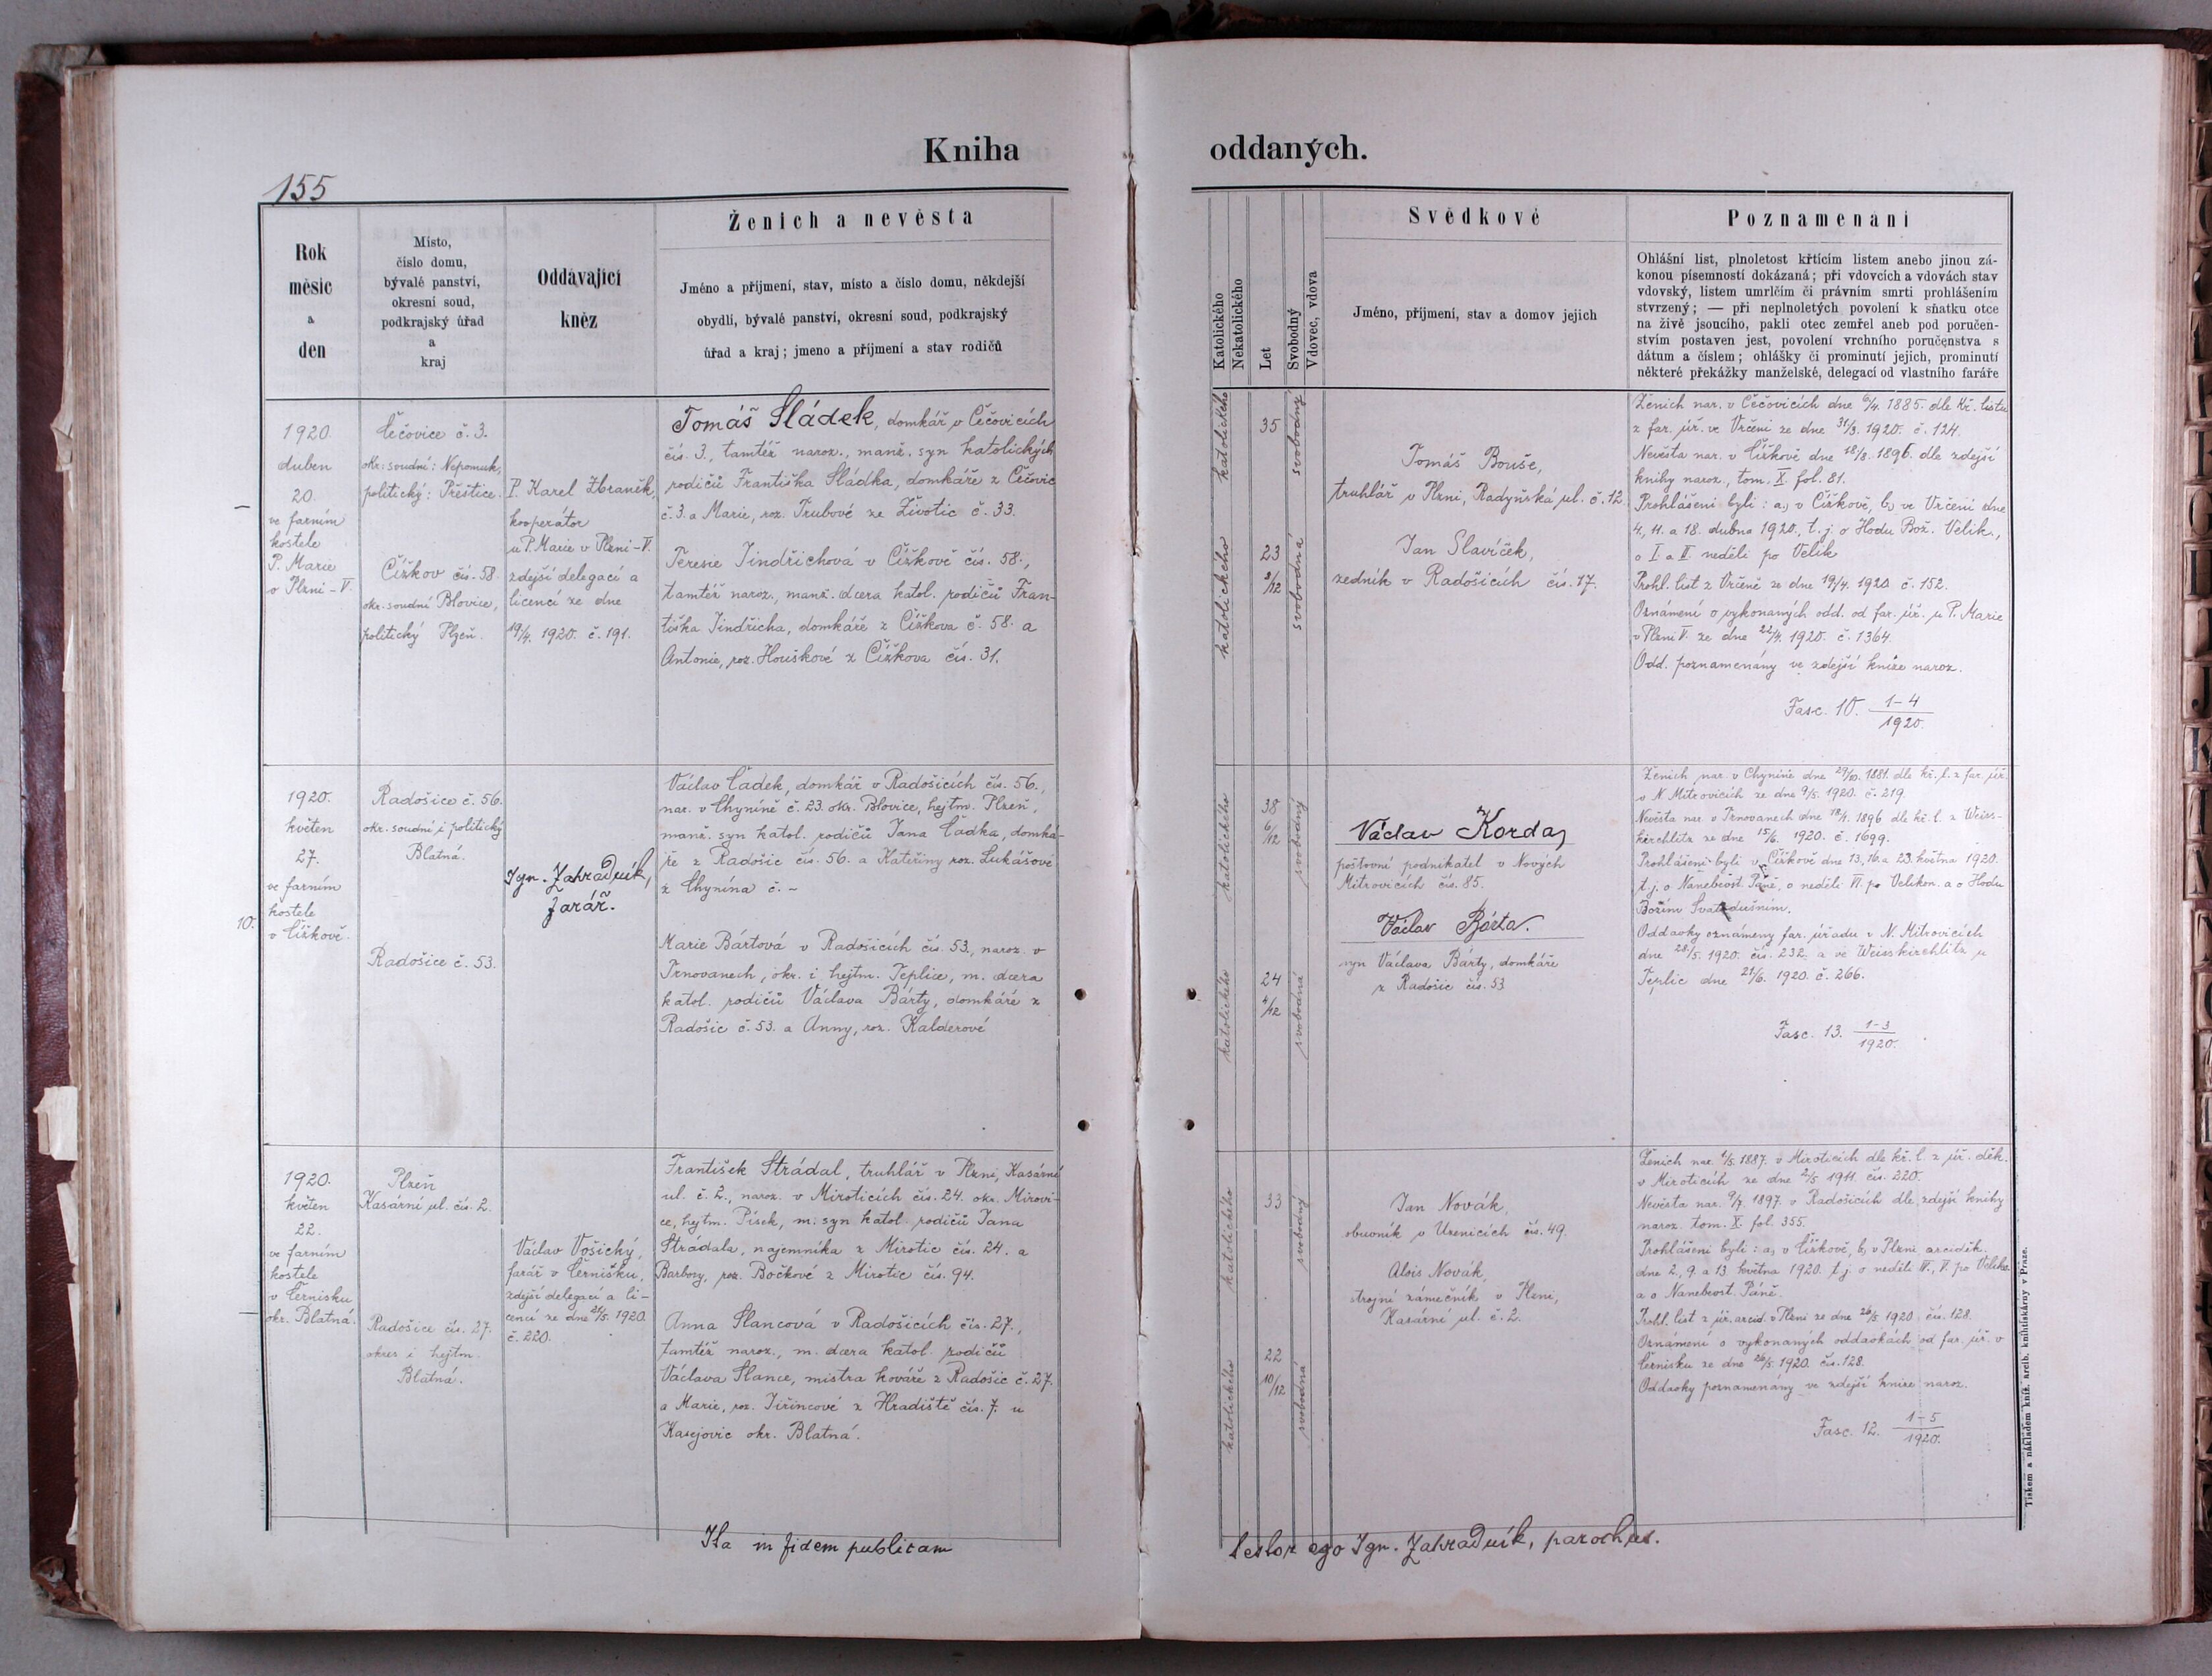 Kniha oddaných.
155
Rok
měsíc
a
den
Místo,
číslo domu,
bývalé panství,
okresní soud,
podkrajský úřad
a
kraj
Oddávající
kněz
Ženich a nevěsta
Jméno a příjmení, stav, místo a číslo domu, někdejší
obydlí, bývalé panství, okresní soud, podkrajský
úřad a kraj; jmeno a příjmení a stav rodičů
Katolického
Nekatolického
Let
Svobodný
Vdovec, vdova
Svědkové
Jméno, příjmení, stav a domov jejich
Poznamenání
Ohlášní list, plnoletost křtícím listem anebo jinou zá-
konou písemností dokázaná; při vdovcích a vdovách stav
vdovský, listem umrlčím či právním smrti prohlášením
stvrzený; — při neplnoletých povolení k sňatku otce
na živě jsoucího, pakli otec zemřel aneb pod poručen-
stvím postaven jest, povolení vrchního poručenstva s
dátum a číslem; ohlášky či prominutí jejich, prominutí
některé překážky manželské, delegací od vlastního faráře
1920.
duben
20.
ve farním
kostele
P. Marie
v Plzni - V.
Čečovice č. 3.
okr. soudní: Nepomuk,
politický: Přeštice.
Čížkov čís. 58.
okr. soudní Blovice,
politický Plzeň.
P. Karel Zbraněk,
kooperátor
u P. Marie v Plzni - V.
zdejší delegací a
licencí ze dne
19/4. 1920. č. 191.
Tomáš Sládek, domkář v Čečovicích
čís. 3., tamtéž naroz., manž. syn katolických
rodičů Františka Sládka, domkáře z Čečovic
č. 3. a Marie, roz. Trubové ze Životic č. 33.
Teresie Jindřichová v Čížkově čís. 58.,
tamtéž naroz., manž. dcera katol. rodičů Fran-
tiška Jindřicha, domkáře z Čížkova č. 58. a
Antonie, roz. Houškové z Čížkova čís. 31.
katolického
35
svobodný
katolického
23
8/12
svobodná
Tomáš Bouše,
truhlář v Plzni, Radyňská ul. č. 12.
Jan Slavíček,
zedník v Radošicích čís. 17.
Ženich nar. v Čečovicích dne 6/4. 1885. dle kř. listu
z far. úř. ve Vrčeni ze dne 31/3. 1920. č. 124.
Nevěsta nar. v Čížkově dne 18/8. 1896. dle zdejší
knihy naroz., tom. X. fol. 81.
Prohlášeni byli: a, v Čížkově, b, ve Vrčeni dne
4., 11. a 18. dubna 1920., t. j. o Hodu Bož. Velik.,
o I a II neděli po Velik
Prohl. list z Vrčeně ze dne 19/4. 1920. č. 152.
Oznámení o vykonaných odd. od far. úř. u P. Marie
v Plzni V. ze dne 22/4. 1920. č. 1364.
Odd. poznamenány ve zdejší knize naroz.
Fasc. 10. 1-4
1920.
10.
1920.
květen
27.
ve farním
kostele
v Čížkově.
Radošice č. 56.
okr. soudní i politický
Blatná.
Radošice č. 53.
Ign. Zahradník,
farář.
Václav Čadek, domkář v Radošicích čís. 56.,
nar. v Chyníně č. 23. okr. Blovice, hejtm. Plzeň,
manž. syn katol. rodičů Jana Čadka, domká-
ře z Radošic čís. 56. a Kateřiny roz. Lukášové
z Chynína č. -
Marie Bártová v Radošicích čís. 53., naroz. v
Trnovanech, okr. i hejtm. Teplice, m. dcera
katol. rodičů Václava Bárty, domkáře z
Radošic č. 53. a Anny, roz. Kalderové
katolického
38
6/12
svobodný
katolického
24
4/12
svobodná
Václav Korda,
poštovní podnikatel v Nových
Mitrovicích čís. 85.
Václav Bárta.
syn Václava Bárty, domkáře
z Radošic čís. 53
Ženich nar. v Chyníně dne 29/10. 1881. dle kř. l. z far. úř.
v N. Mitrovicích ze dne 9/5. 1920. č. 219.
Nevěsta nar. v Trnovanech dne 18/1. 1896 dle kř. l. z Weiss-
kirchlitz ze dne 15/6. 1920. č. 1699.
Prohlášeni byli v Čížkově dne 13., 16. a 23. května 1920.
t. j. o Nanebevst. Páně, o neděli VI. po Velikon. a o Hodu
Božím Svatodušním.
Oddavky oznámeny far. úřadu v N. Mitrovicích
dne 28/5. 1920. čís. 232. a ve Weisskirchlitz u
Teplic dne 21/6. 1920. č. 266.
Fasc. 13. 1-3
1920.
1920.
květen
22.
ve farním
kostele
v Černisku
okr. Blatná.
Plzeň
Kasární ul. čís. 2.
Radošice čís. 27.
okres i hejtm.
Blatná.
Václav Vošický,
farář v Černisku,
zdejší delegací a li-
cencí ze dne 21/5. 1920.
č. 220.
František Strádal, truhlář v Plzni, Kasární
ul. č. 2., naroz. v Miroticích čís. 24. okr. Mirovi-
ce, hejtm. Písek, m. syn katol. rodičů Jana
Strádala, nájemníka z Mirotic čís. 24. a
Barbory, roz. Bočkové z Mirotic čís. 94.
Anna Slancová v Radošicích čís. 27.,
tamtéž naroz., m. dcera katol. rodičů
Václava Slance, mistra kováře z Radošic č. 27.
a Marie, roz. Jiřincové z Hradiště čís. 7. u
Kasejovic okr. Blatná.
katolického
33
svobodný
katolického
22
10/12
svobodná
Jan Novák,
obuvník v Uzenicích čís. 49.
Alois Novák,
strojní zámečník v Plzni,
Kasární ul. č. 2.
Ženich nar. 1/5. 1887. v Miroticích dle kř. l. z úř. děk.
v Miroticích ze dne 2/5 1911. čís. 220.
Nevěsta nar. 9/7. 1897. v Radošicích dle zdejší knihy
naroz. tom. X. fol. 355.
Prohlášeni byli: a, v Čížkově, b, v Plzni arciděk.
dne 2., 9. a 13. května 1920. t. j. o neděli IV., V. po Veliko.
a o Nanebevst. Páně.
Prohl. list z úř. arcid. v Plzni ze dne 26/5 1920 čís. 128.
Oznámení o vykonaných oddavkách od far. úř. v
Černisku ze dne 26/5. 1920. čís. 128.
Oddavky poznamenány ve zdejší knize naroz.
Fasc. 12. 1-5
1920.
Ita in fidem publicam testor ego Ign. Zahradník, parochus.
Tiskem a nákladem kníž. arcib. knihtiskárny v Praze.